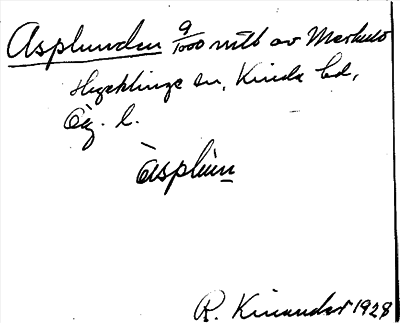 Asplunden 9/1000 mtl av Markulo
Hycklinge sn, Kinda hd,
Ög. l.
àsplùn
R. Kinander 1928